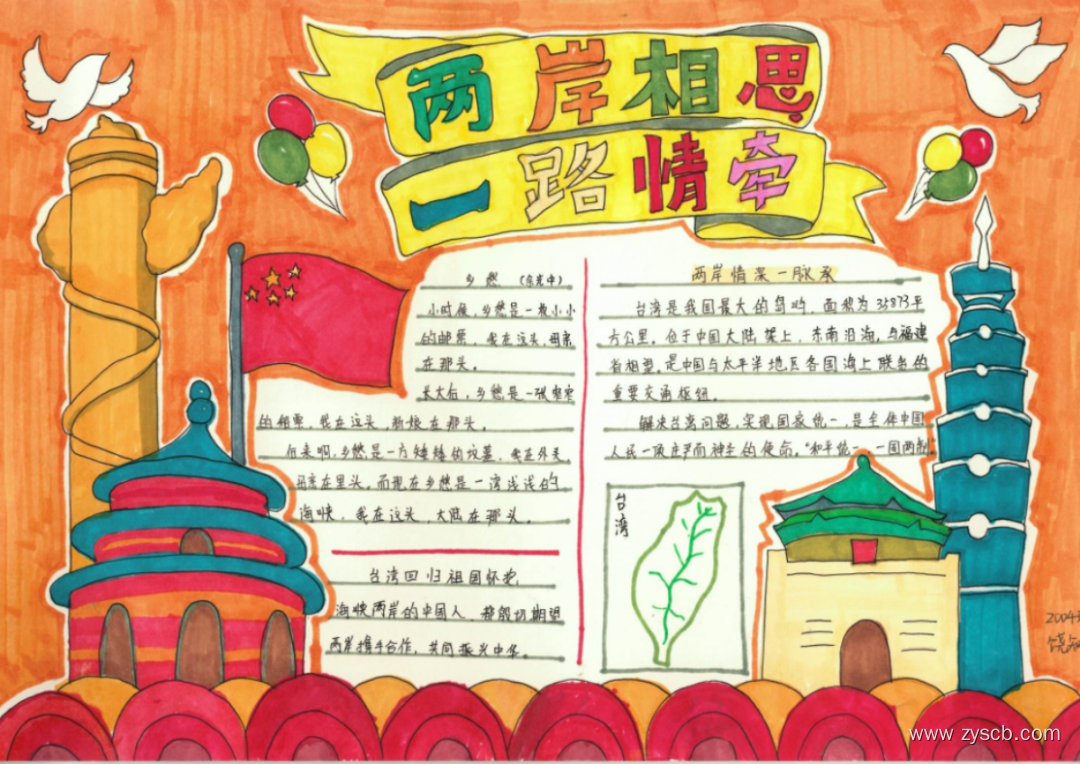 两岸相思
一路情牵
乡愁 (余光中)
小时候,乡愁是一枚小小
的邮票,我在这头,母亲
在那头。
长大后,乡愁是一张窄窄
的船票,我在这头,新娘在那头。
后来啊,乡愁是一方矮矮的坟墓,我在外头,
母亲在里头。而现在乡愁是一湾浅浅的
海峡,我在这头,大陆在那头。
台湾回归祖国怀抱
海峡两岸的中国人,都殷切期望
两岸携手合作,共同振兴中华。
两岸情深一脉承
台湾是我国最大的岛屿,面积为35873平
方公里。位于中国大陆架上,东南沿海,与福建
省相望。是中国与太平洋地区各国海上联系的
重要交通枢纽。
解决台湾问题,实现国家统一,是全体中国
人民一项庄严而神圣的使命。“和平统一、一国两制”
台湾
www.zyscb.com